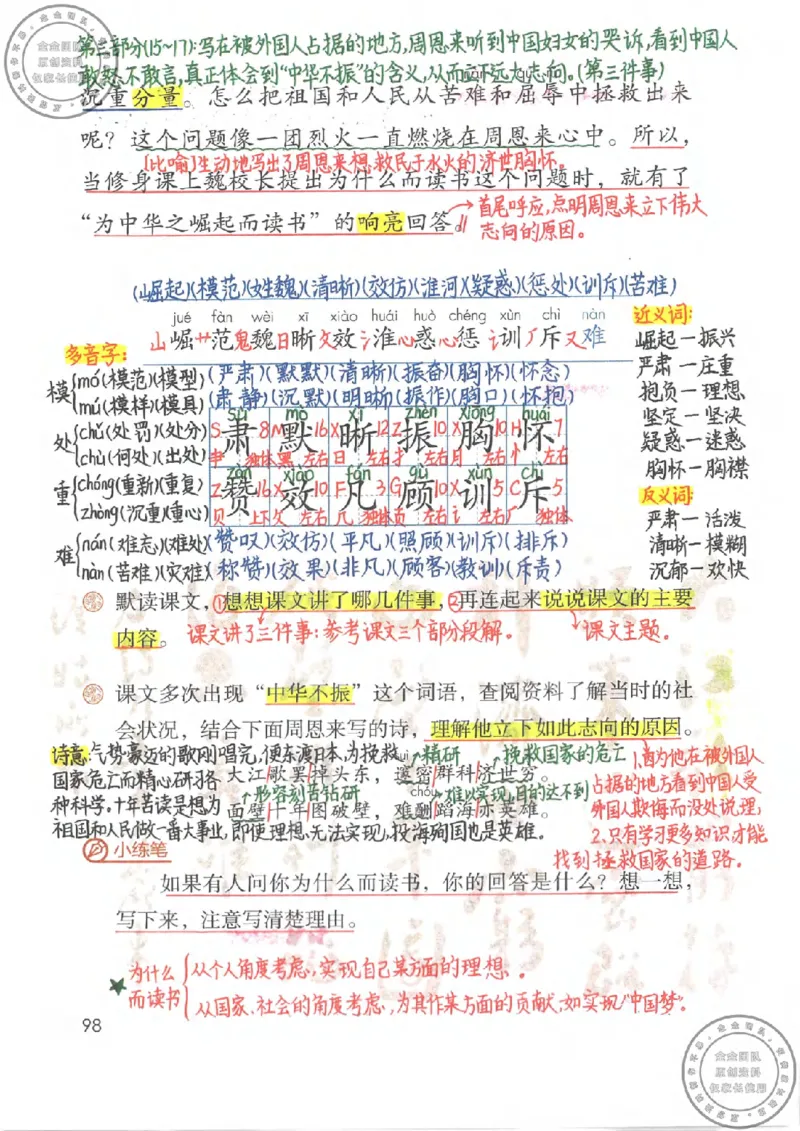 第三部分(15~17):写在被外国人占据的地方,周恩来听到中国妇女的哭诉,看到中国人
敢怒不敢言,真正体会到“中华不振”的含义,从而立下远大志向。(第三件事)
沉重分量。怎么把祖国和人民从苦难和屈辱中拯救出来
呢?这个问题像一团烈火一直燃烧在周恩来心中。所以,
[比喻]生动地写出了周恩来想救民于水火的济世胸怀。
当修身课上魏校长提出为什么而读书这个问题时,就有了
“为中华之崛起而读书”的响亮回答。
首尾呼应,点明周恩来立下伟大
志向的原因。
(崛起)(模范)(姓魏)(清晰)(效仿)(淮河)(疑惑)(惩处)(训斥)(苦难)
jué fàn wèi xī xiào huái huò chéng xùn chì nàn
山崛艹范鬼魏日晰攵效氵淮心惑心惩讠训厂斥又难
近义词:
崛起—振兴
严肃—庄重
抱负—理想
坚定—坚决
疑惑—迷惑
胸怀—胸襟
反义词:
严肃—活泼
清晰—模糊
沉郁—欢快
多音字:
模 mó(模范)(模型)
mú(模样)(模具)
处 chǔ(处罚)(处分)
chù(何处)(出处)
重 chóng(重新)(重复)
zhòng(沉重)(重心)
难 nán(难忘)(难处)
nàn(苦难)(灾难)
(严肃)(默默)(清晰)(振奋)(胸怀)(怀念)
(肃静)(沉默)(明晰)(振作)(胸口)(怀抱)
sù mò xī zhèn xiōng huái
S肃8 M默16 X晰12 Z振10 X胸10 H怀7
聿 独体 黑 左右 日 左右 扌 左右 月 左右 忄 左右
zàn xiào fán gù xùn chì
Z赞16 X效10 F凡3 G顾10 X训5 C斥5
贝 上下 攵 左右 几 独体 页 左右 讠 左右 厂 独体
(赞叹)(效仿)(平凡)(照顾)(训斥)(排斥)
(称赞)(效果)(非凡)(顾客)(教训)(斥责)
默读课文,①想想课文讲了哪几件事,②再连起来说说课文的主要
内容。
课文讲了三件事:参考课文三个部分段解。
课文主题。
课文多次出现“中华不振”这个词语,查阅资料了解当时的社
会状况,结合下面周恩来写的诗,理解他立下如此志向的原因。
诗意:气势豪迈的歌刚唱完,便东渡日本,为挽救
国家危亡而精心研究各
种科学。十年苦读是想为
祖国和人民做一番大事业,即使理想无法实现,投海殉国也是英雄。
精研
挽救国家的危亡
大江歌罢掉头东,邃密群科济世穷。
形容刻苦钻研
难以实现,目的达不到
面壁十年图破壁,难酬蹈海亦英雄。
1.因为他在被外国人
占据的地方看到中国人受
外国人欺侮而没处说理;
2.只有学习更多知识才能
找到拯救国家的道路。
小练笔
如果有人问你为什么而读书,你的回答是什么?想一想,
写下来,注意写清楚理由。
为什么
而读书
从个人角度考虑,实现自己某方面的理想。
从国家、社会的角度考虑,为其作某方面的贡献,如实现“中国梦”。
98
原创资料